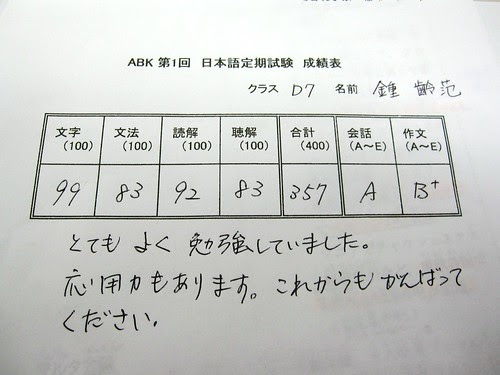 ABK 第1回 日本語定期試験 成績表
クラス D7 名前 鍾 齢范
文字 文法 読解 聴解 合計 会話 作文
(100) (100) (100) (100) (400) (A～E) (A～E)
99 83 92 83 357 A B+
とても よく 勉強していました。
応用力もあります。これからも がんばって
ください.